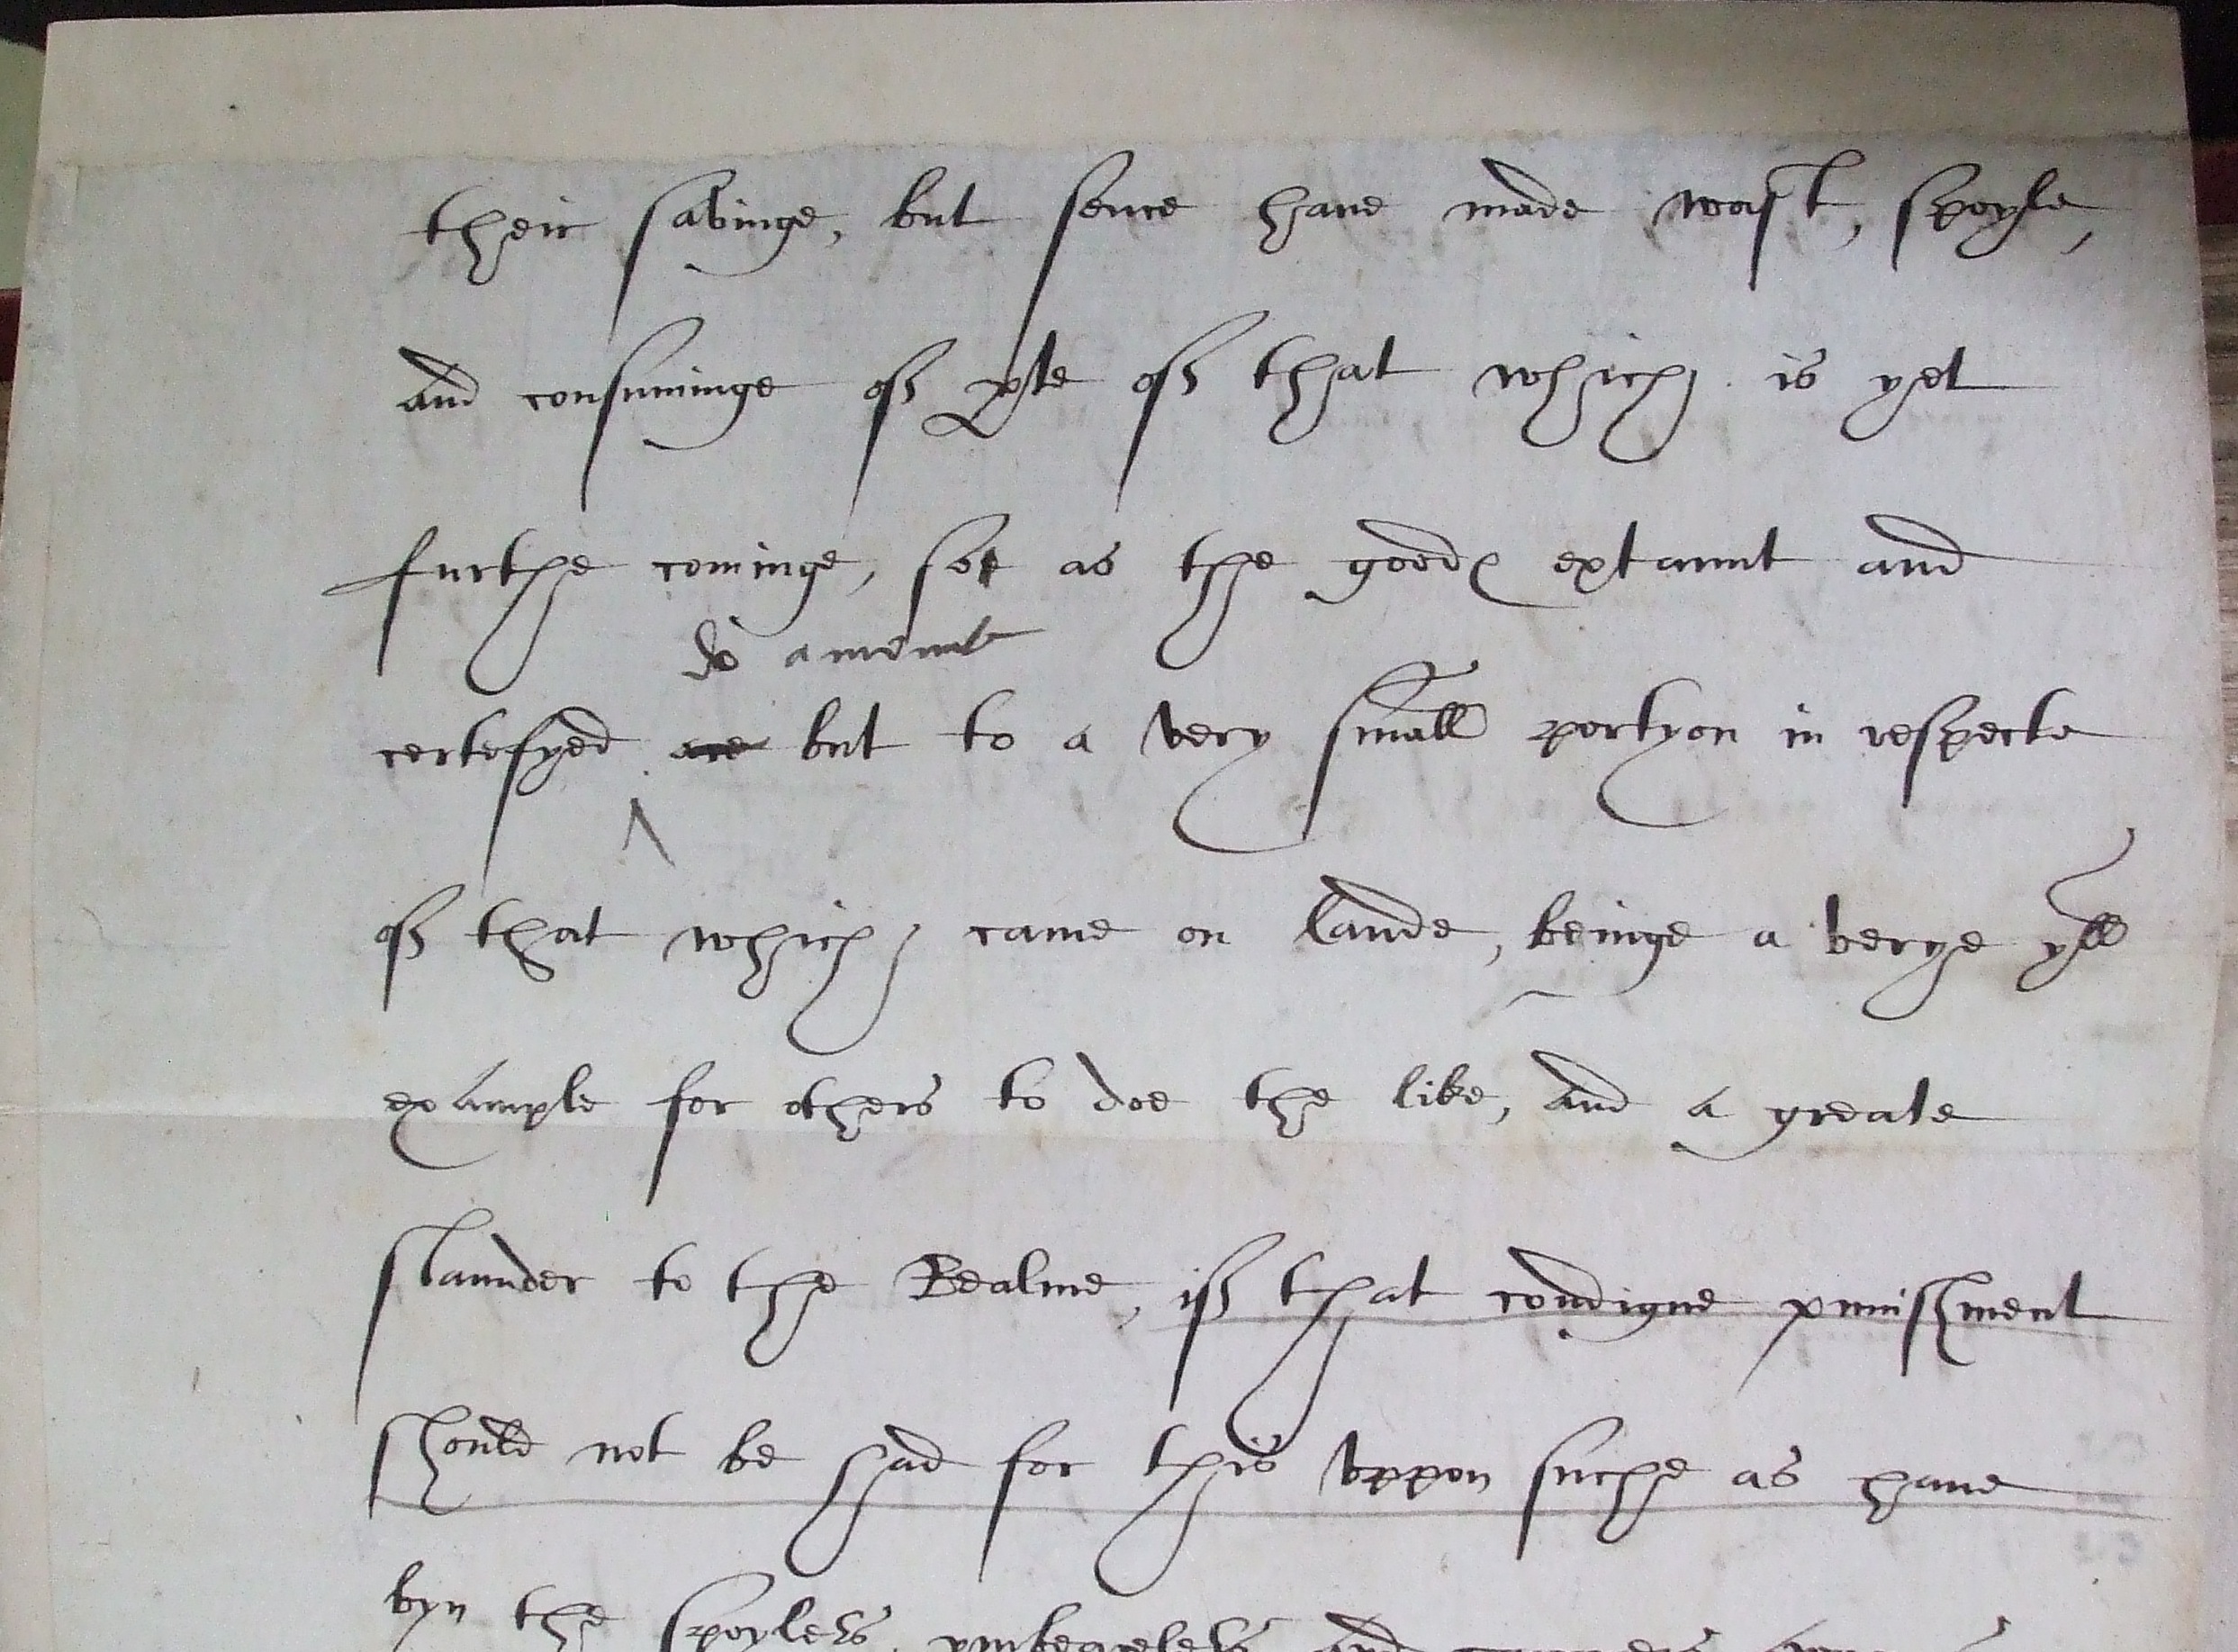 their savinge, but sence have made wast, spoyle,
and consuminge of pte of that which is yet
furthe cominge, soe as the goodes extaunt and
do amount
certefyed are but to a very small portyon in respecte
of that which came on lande, beinge a verye yll
example for others to doe the like, and a greate
slaunder to the Realme, if that condigne punishment
should not be had for this vppon suche as have
byn the spoylers, and